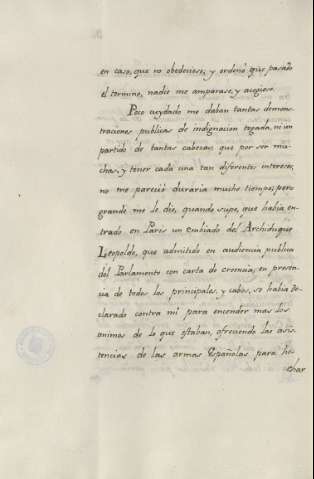 en caso, que no obedeciese, y ordenò que pasado
el termino, nadie me amparase, y acogiese.
Poco cuydado me daban tantas demons
traciones publicas de indignacion togada, ni un
partido de tantas cabezas, que por ser mu
chas, y tener cada una tan diferentes intereses,
no me pareciò duraria mucho tiempo; pero
grande me le diò, quando supe, que havia en
trado en Paris un Embiado del Archiduque
Leopoldo, que admitido en audiencia publica
del Parlamento con carta de creencia, en presen
cia de todos los principales, y cabos, se havia de
clarado contra mi para encender mas los
animos de lo que estaban, ofreciendo las asis
tencias de las armas Españolas para he
char